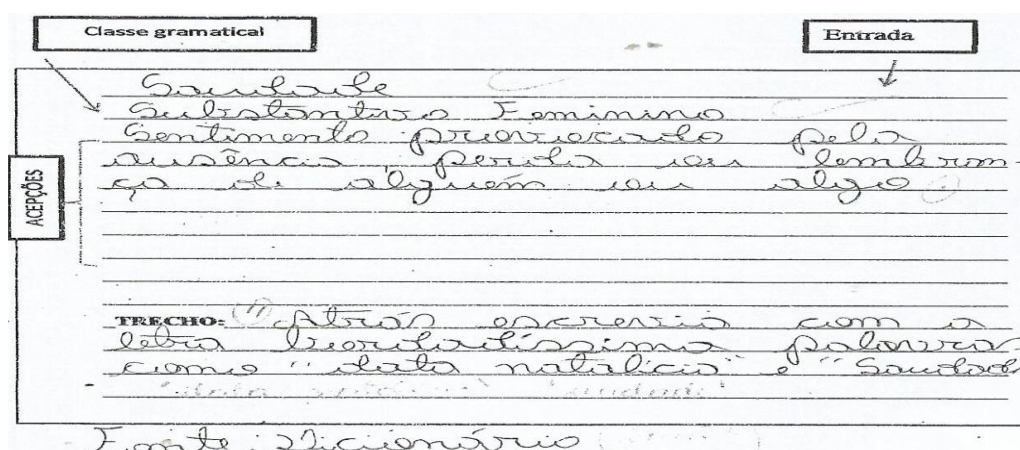 Classe gramatical
Entrada
Saudade
Substantivo Feminino
Sentimento provocado pela
ausência, perda ou lembran-
ça de alguém ou algo
ACEPÇÕES
TRECHO: " Atrás escrevia com a
letra bordadíssima palavras
como "data natalícia" e "Saudade
Fonte: Dicionário